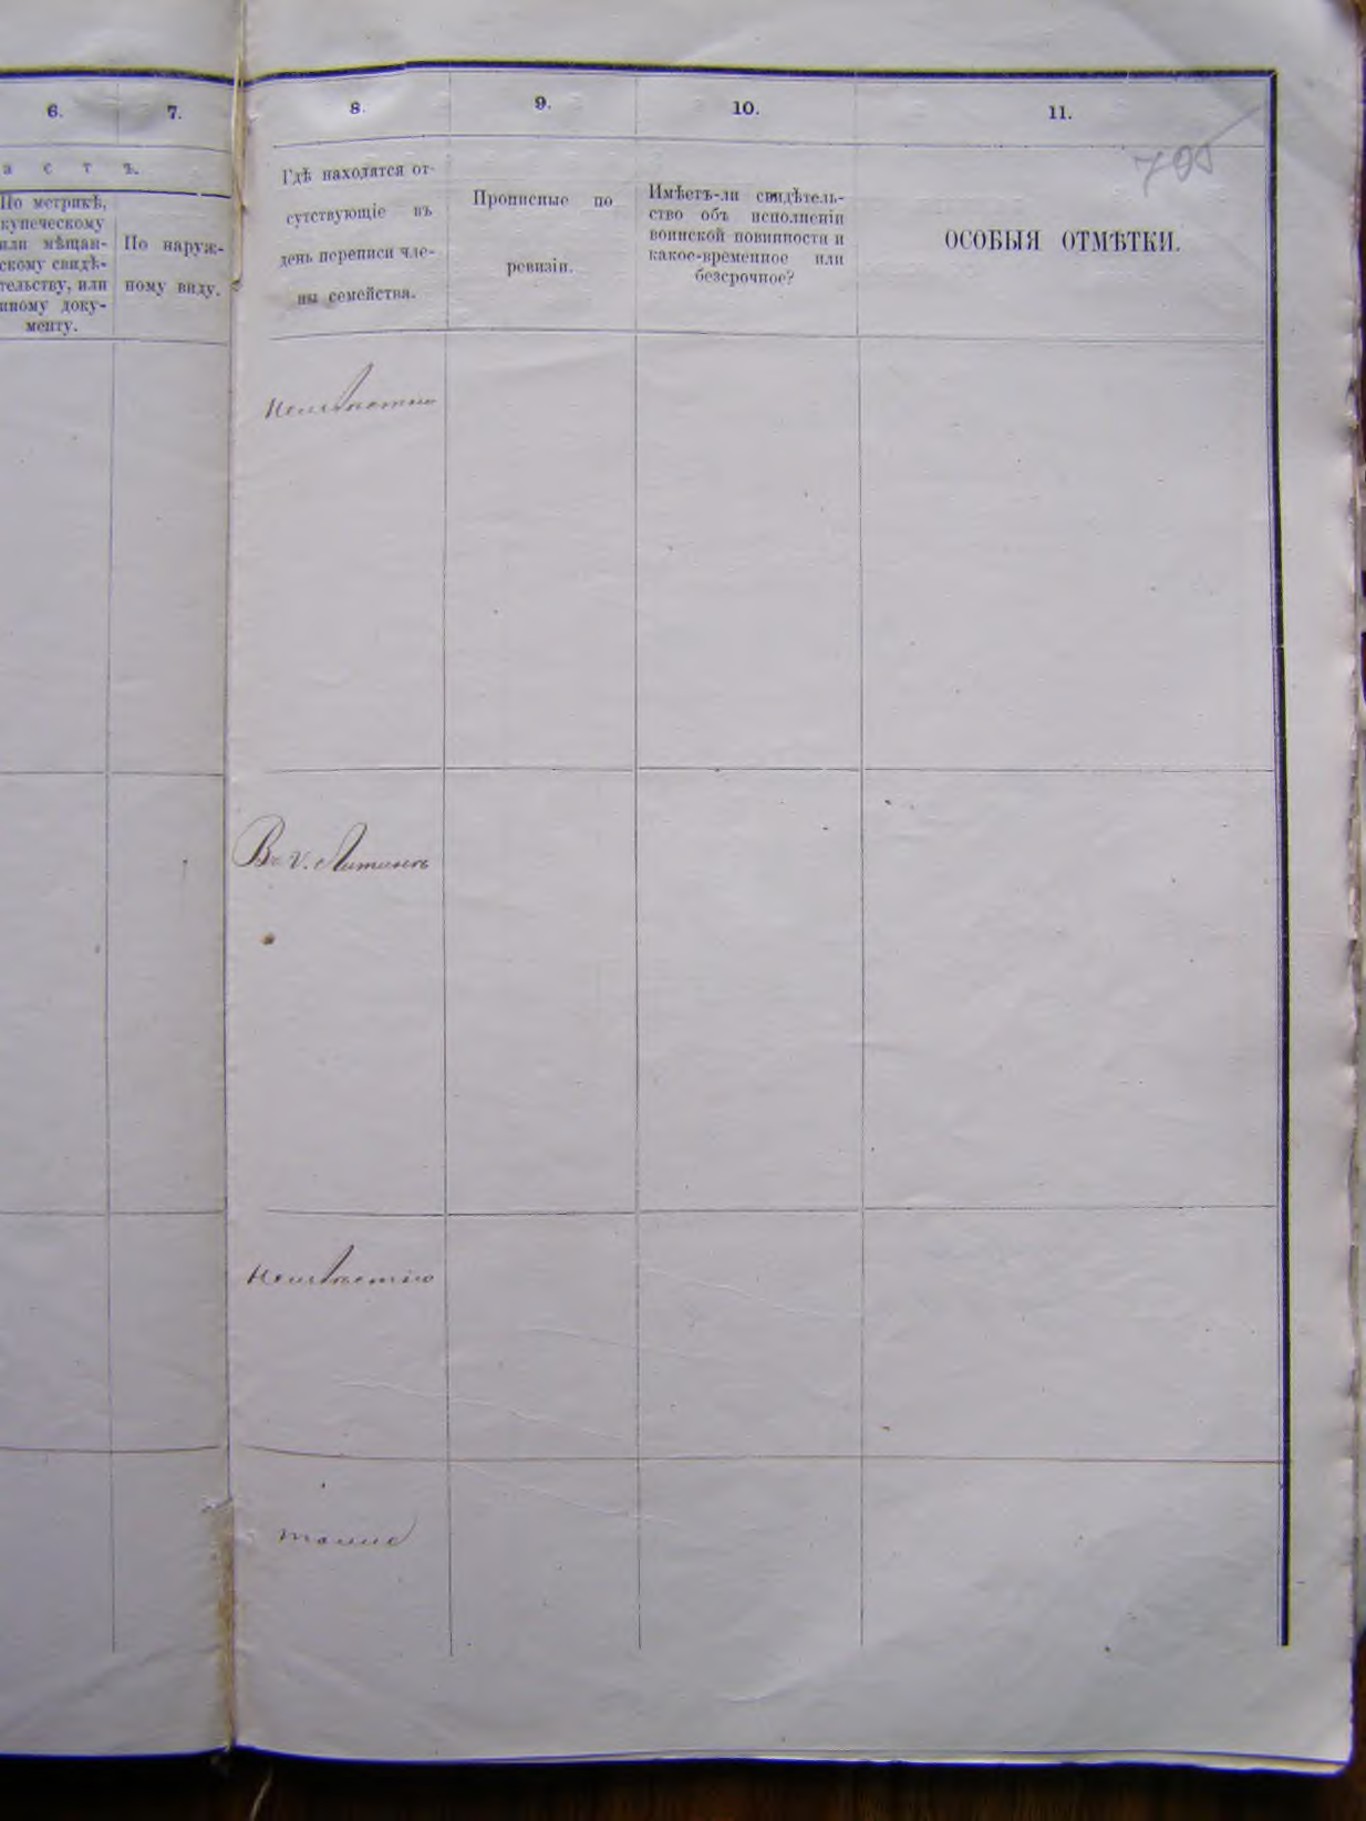 6.
7.
8.
9.
10.
11.
а с т ь.
705
По метрикѣ,
купеческому
или мѣщан-
скому свидѣ-
тельству, или
иному доку-
менту.
По наруж-
ному виду.
Гдѣ находятся от-
сутствующіе въ
день переписи чле-
ны семейства.
Прописные по
ревизіи.
Имѣетъ-ли свидѣтель-
ство объ исполненіи
воинской повинности и
какое-временное или
безсрочное?
ОСОБЫЯ ОТМѢТКИ.
Неизвѣстно
Въ г. Литинѣ
Неизвѣстно
тоже